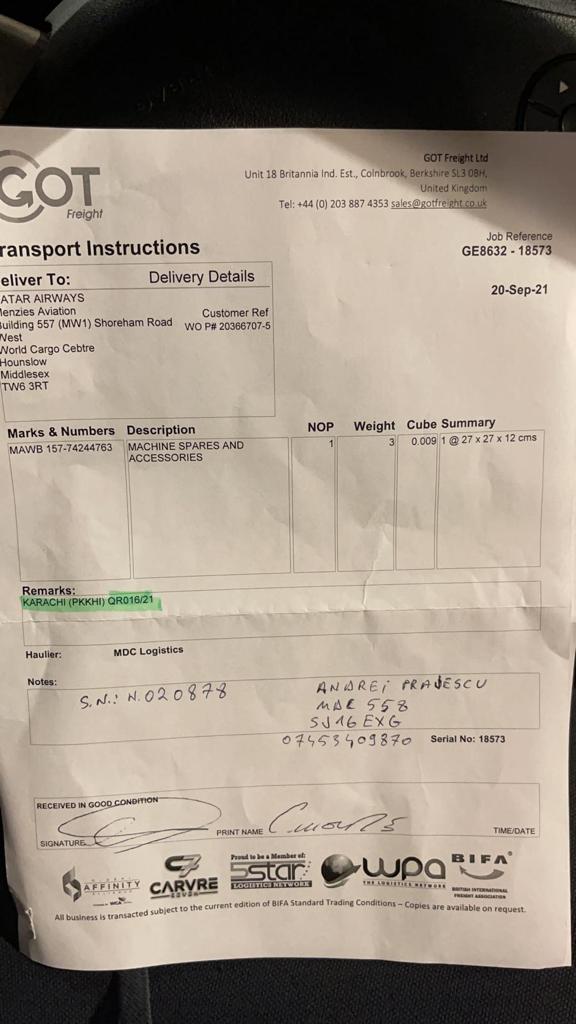 GOT
Freight
GOT Freight Ltd
Unit 18 Britannia Ind. Est., Colnbrook, Berkshire SL3 0BH,
United Kingdom
Tel: +44 (0) 203 887 4353 sales@gotfreight.co.uk
ransport Instructions
Job Reference
GE8632 - 18573
20-Sep-21
eliver To: Delivery Details
ATAR AIRWAYS
enzies Aviation
uilding 557 (MW1) Shoreham Road
West
World Cargo Cebtre
Hounslow
Middlesex
TW6 3RT
Customer Ref
WO P# 20366707-5
Marks & Numbers Description NOP Weight Cube Summary
MAWB 157-74244763 MACHINE SPARES AND 1 3 0.009 1 @ 27 x 27 x 12 cms
ACCESSORIES
Remarks:
KARACHI (PKKHI) QR016/21
Haulier: MDC Logistics
Notes:
S.N.: N.020878
ANDREI PRAJESCU
558
SJ16 EXG
07453409870
Serial No: 18573
RECEIVED IN GOOD CONDITION
SIGNATURE
PRINT NAME
TIME/DATE
AFFINITY
CARVRE
Proud to be a Member of:
5star
LOGISTICS NETWORK
wpa
THE LOGISTICS NETWORK
BIFA
BRITISH INTERNATIONAL
FREIGHT ASSOCIATION
All business is transacted subject to the current edition of BIFA Standard Trading Conditions – Copies are available on request.